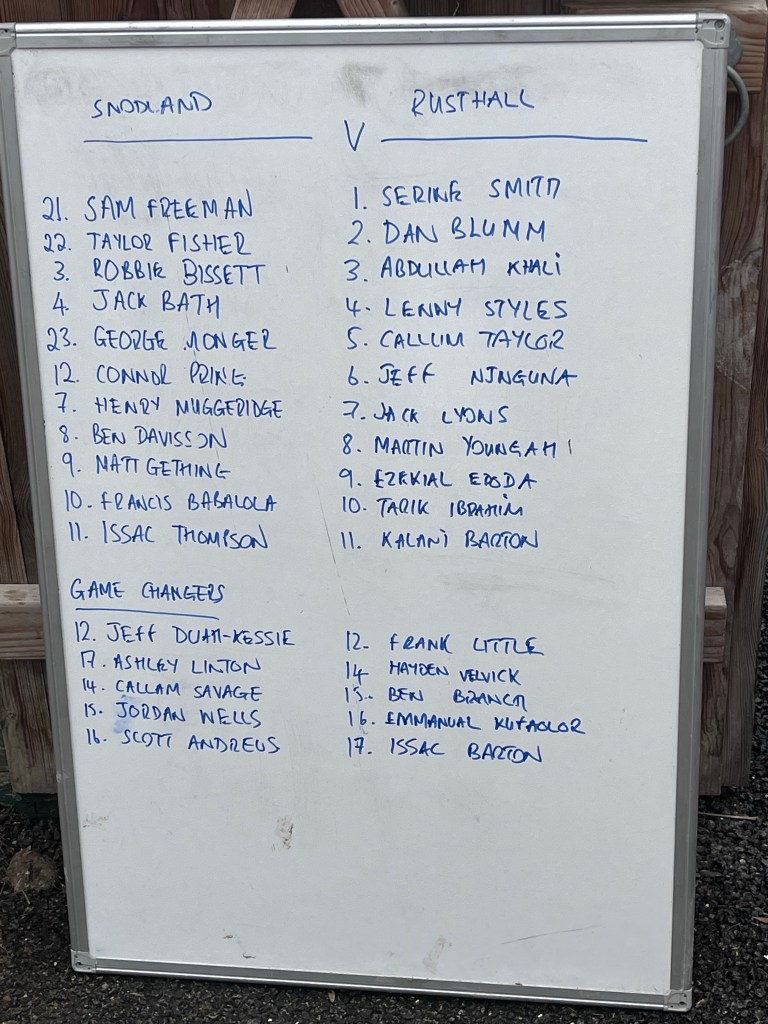 SNODLAND
V
RUSTHALL
21. SAM FREEMAN
22. TAYLOR FISHER
3. ROBBIE BISSETT
4. JACK BATH
23. GEORGE MONGER
12. CONNOR PRING
7. HENRY MUGGERIDGE
8. BEN DAVISSON
9. MATT GETHING
10. FRANCIS BABALOLA
11. ISSAC THOMPSON
GAME CHANGERS
12. JEFF DUAH-KESSIE
17. ASHLEY LINTON
14. CALLAM SAVAGE
15. JORDAN WELLS
16. SCOTT ANDREWS
1. SERINE SMITH
2. DAN BLUMM
3. ABDULLAH KHALi
4. LENNY STYLES
5. CALLUM TAYLOR
6. JEFF NINGUNA
7. JACK LYONS
8. MARTIN YOUNGAH
9. EZEKIAL EDODA
10. TARIK IBRAHIM
11. KALANi BARTON
12. FRANK LITTLE
14 HAYDEN VELVICK
15. BEN BRANCH
16. EMMANUAL
17. ISSAC BARTON